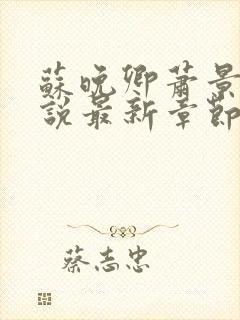 蘇晚卿蕭景
說最新章節
蔡志忠